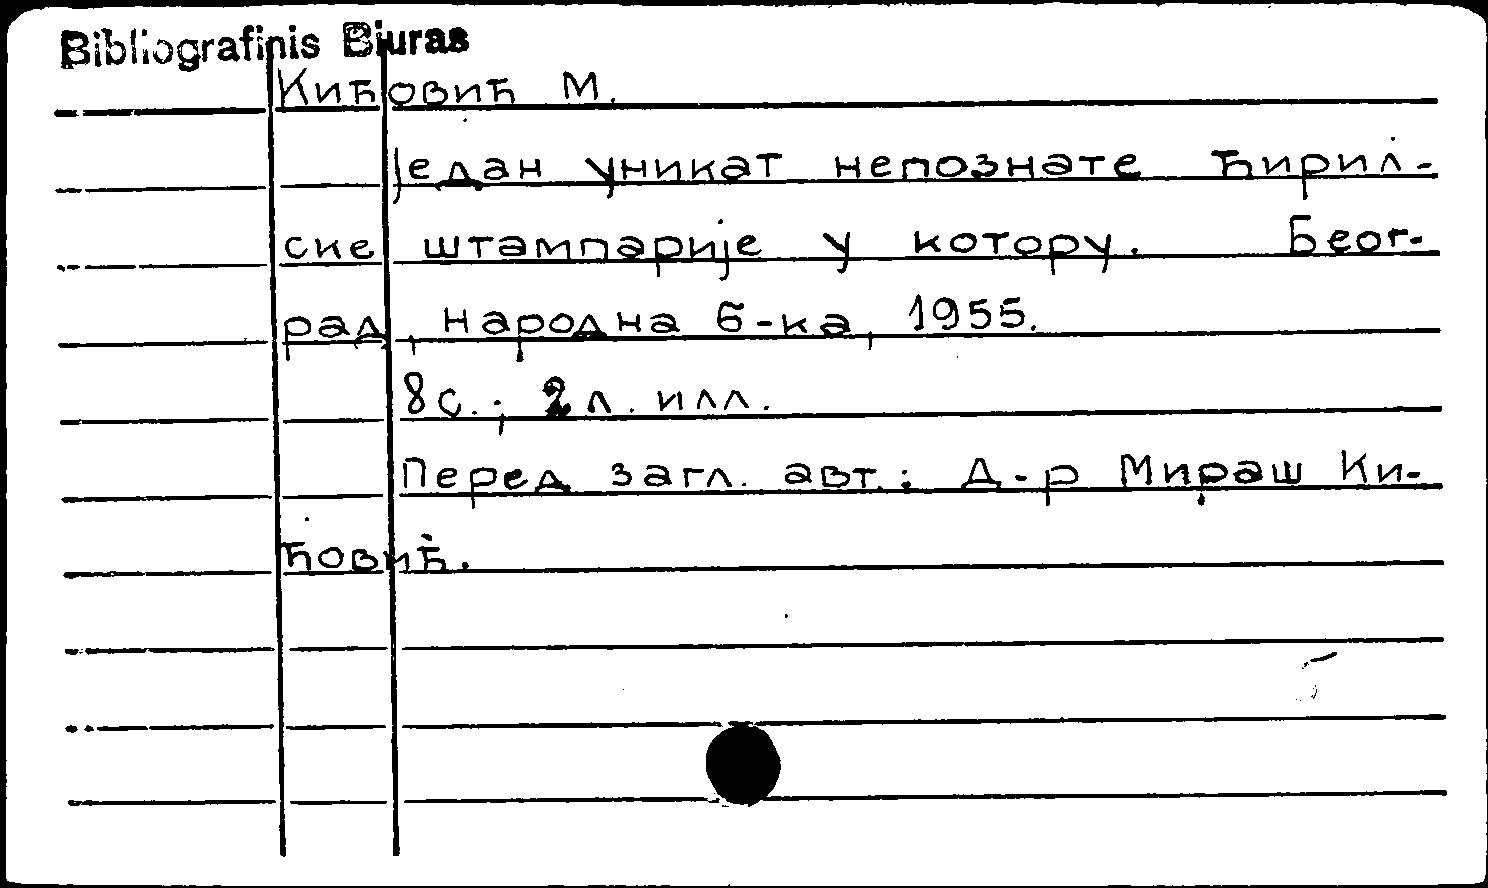 Bibliografinis Biuras
Кићовић М.
Један уникат непознате ћирил-
ске штампарије у котору. Беог-
рад, народна б-ка, 1955.
8 с.; 2 л. илл.
Перед загл. авт.: Д-р Мираш Ки-
ћовић.